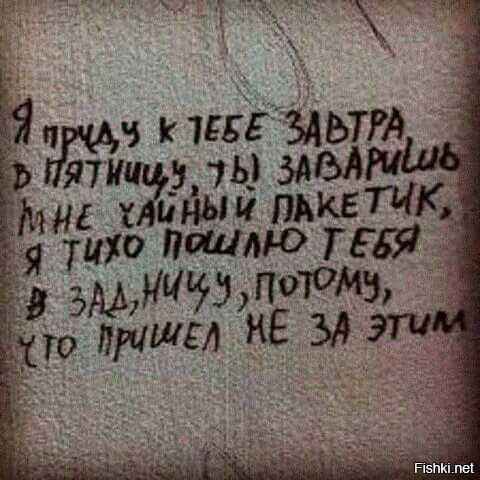 Я прчд,у к тебе завтра,
в пятницу, ты заваришь
мне чайный пакетик,
я тихо пошлю тебя
в зад,ницу, потому,
что пришел не за этим
Fishki.net